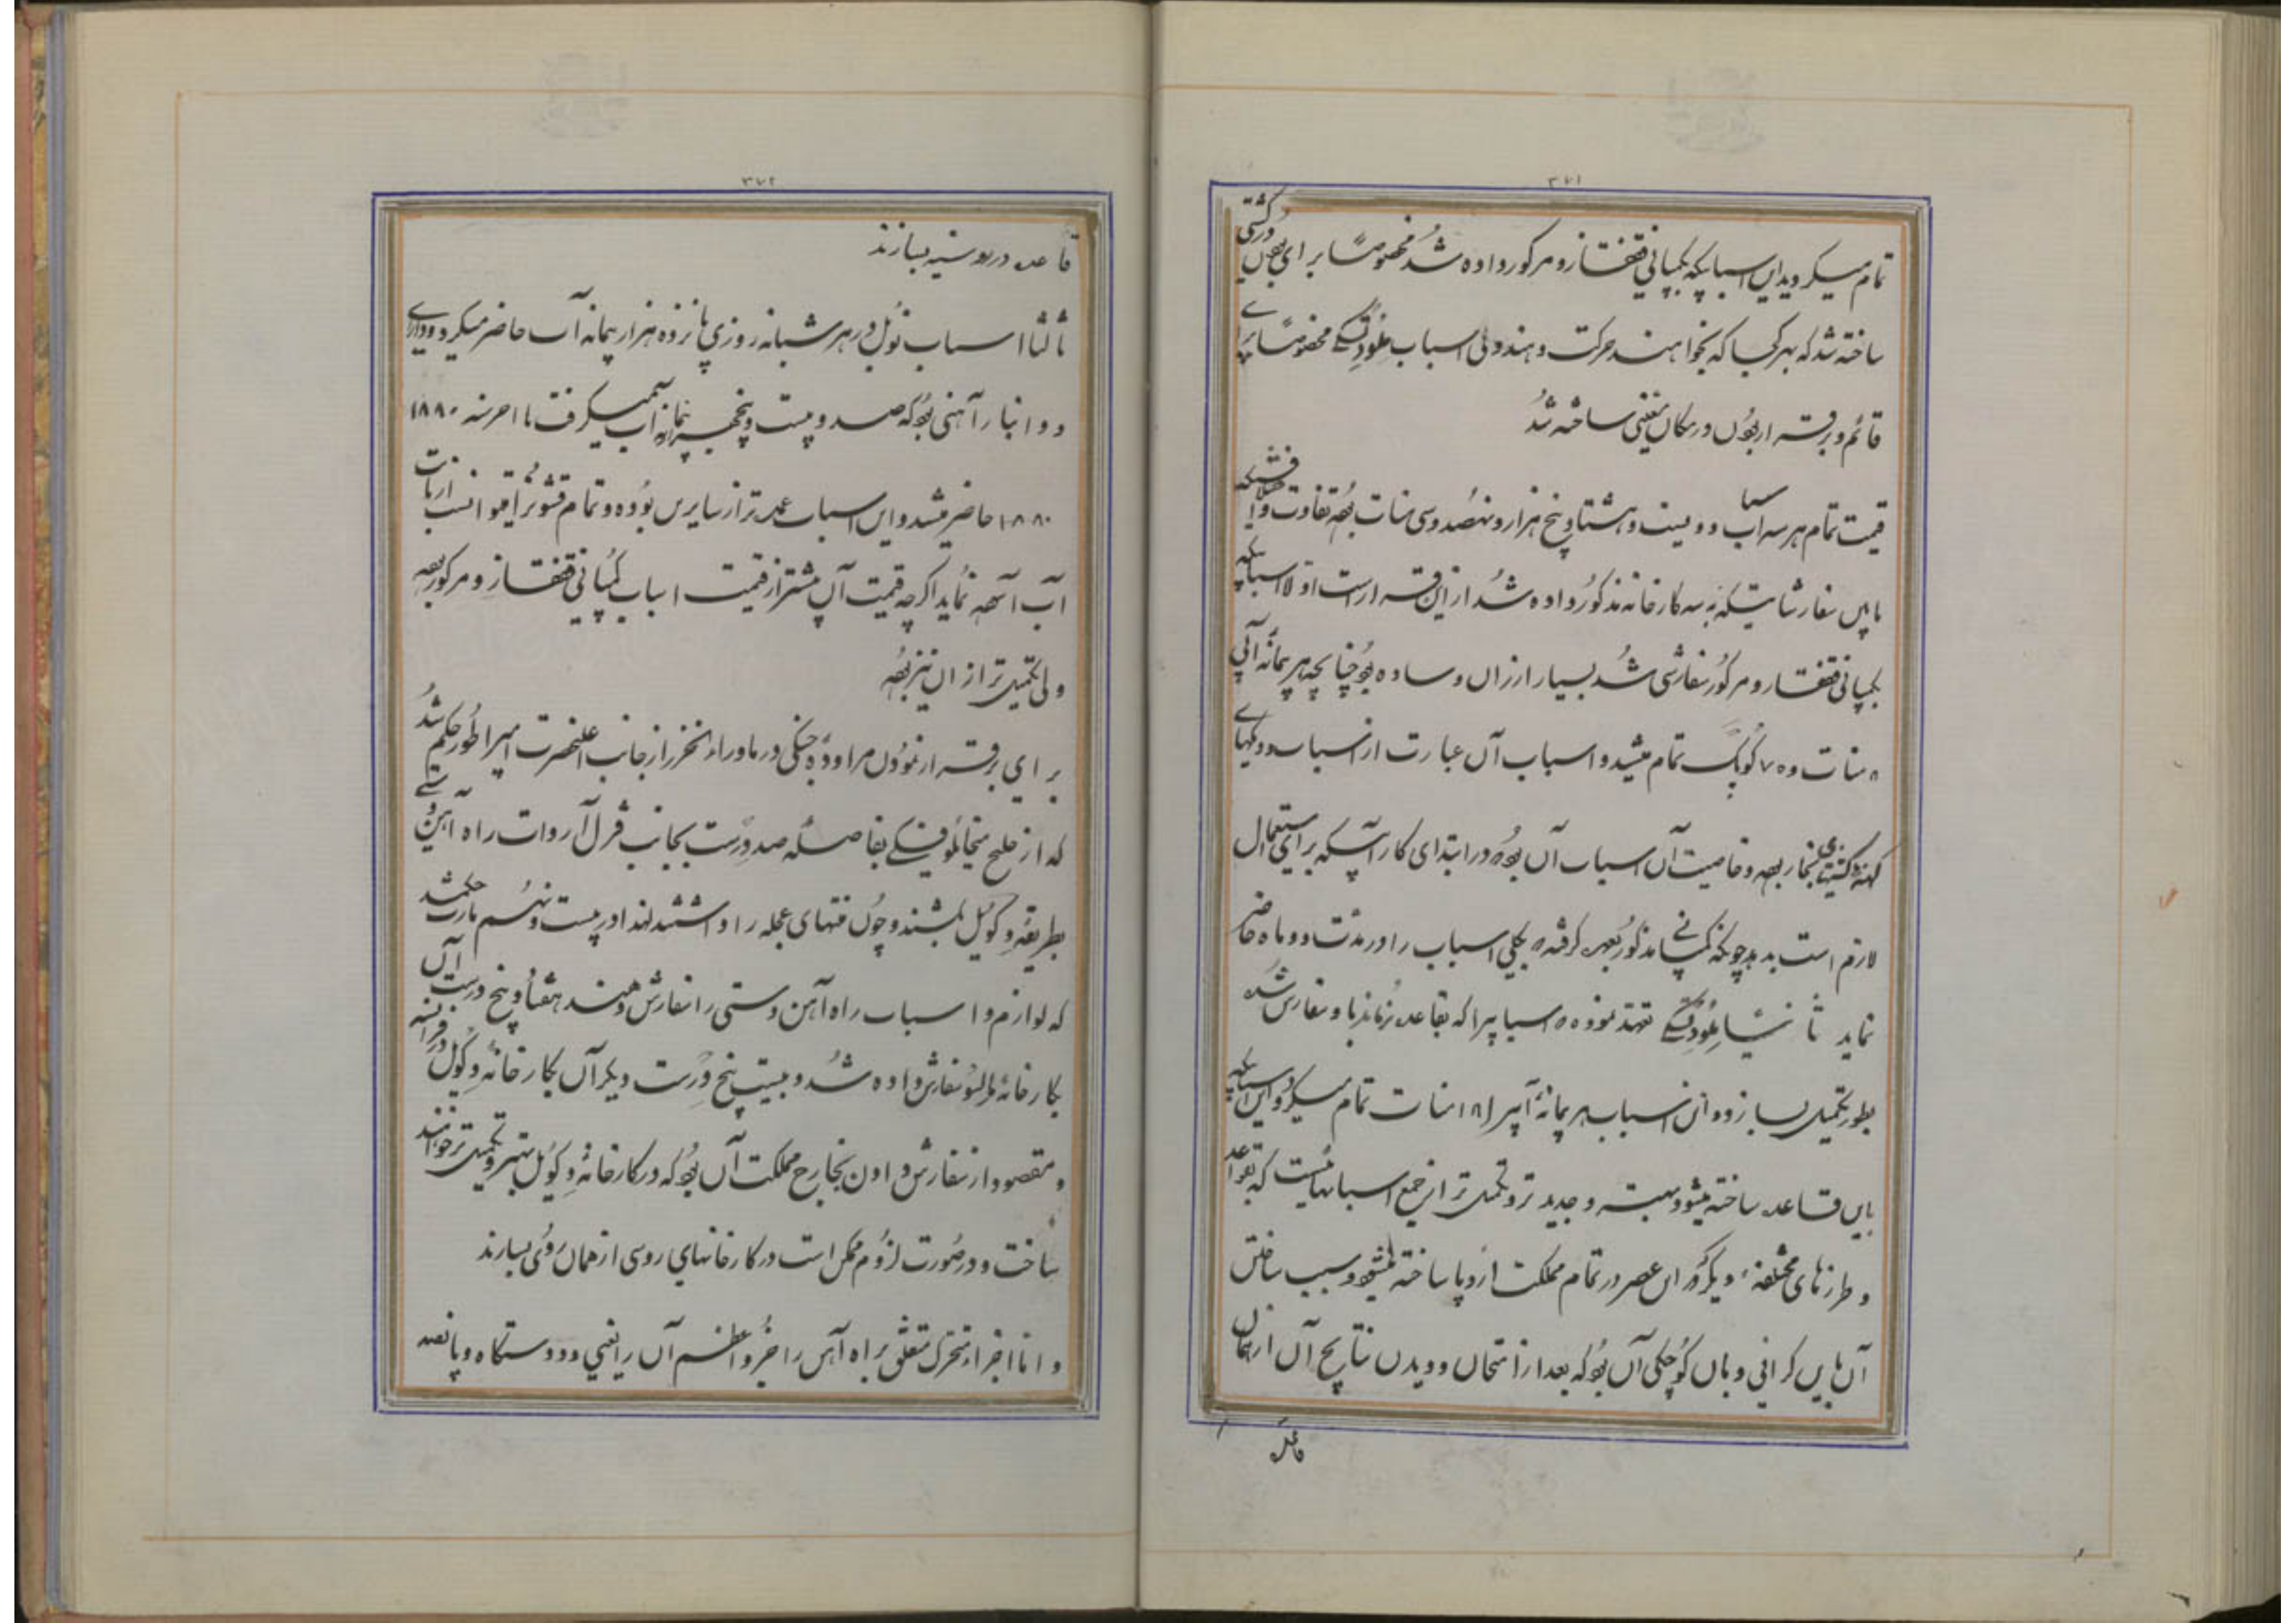 ۳۷۱
تمام میکردید این اسبابیکه بکمپانی قفقاز و مرکور داده شد مخصوصًا برای بودن در کشتی
ساخته شد که بهر کجا که بخواهند حرکت دهند ولی اسباب مخصوصًا برای
قائم و برقرار بودن در مکان معینی ساخته شد
قیمت تمام هر سه اسباب دویست و هشتاد و پنج هزار و نهصد و سی منات بود تفاوت
مابین سفارشاتیکه به سه کارخانه مذکور داده شد از این قرار است اولا اسبابیکه
بکمپانی قفقاز و مرکور سفارش شد بسیار ارزان و ساده بود چنانچه هر پیمانه آبی
۸ منات و ۷۵ کوپک تمام میشد و اسباب آن عبارت از اسباب و دیگهای
کهنه کشتیهای بخار بود و خاصیت آن اسباب آن بود که در ابتدای کار آبیکه برای استعمال
لازم است بدهد چونکه کمپانی مذکور بعهده گرفته که کلی اسباب را در مدت دو ماه حاضر
نماید ثانیًا تعهد نموده که اسبابیرا که بقاعده نرماندبا و سفارش شده
بطور تکمیل بسازد و این اسباب هر پیمانه آبیرا ۱۸ منات تمام میکرد و این اسبابیکه
باین قاعده ساخته میشود بهتر و جدیدتر و تکمیل‌تر از جمیع اسبابهائیست که بقواعد
و طرزهای مختلفه دیگر در این عصر در تمام مملکت اروپا ساخته میشود و سبب ساختن
آن باین گرانی و بآن کوچکی آن بود که بعد از امتحان و دیدن نتایج آن از همان
قاعده
۳۷۲
قاعده در روسیه بسازند
ثالثا اسباب نوبل در هر شبانه روزی پانزده هزار پیمانه آب حاضر میکرد و دارای
دو انبار آهنی بود که صد و بیست و پنجهزار پیمانه آب میگرفت تا آخر سنه ۱۸۸۰
۱۸۸۰ حاضر میشد و این اسباب عمده‌تر از سایرین بوده و تمام قشون را میتوانست از بابت
آب آسوده نماید اگرچه قیمت آن بیشتر از قیمت اسباب کمپانی قفقاز و مرکور بود
ولی تکمیل‌تر از آن نیز بود
برای برقرار نمودن مراوده جنگی در ماوراء الخزر از جانب اعلیحضرت امپراطور حکم شد
که از خلیج میخائلوفسکی بفاصله صد ورست بجانب قزل آروات راه آهن دستی
بطریقه دکویل بکشند و چون منتهای عجله را داشتند لهذا در بیست و نهم مارت حکم شد
که لوازم و اسباب راه آهن دستی را سفارش دهند هفتاد و پنج ورست آن
بکارخانه مالتسو سفارش داده شد و بیست پنج ورست دیگر آن بکارخانه دکویل در فرانسه
و مقصود از سفارش دادن بخارج مملکت آن بود که در کارخانه دکویل بهتر و تکمیل‌تر خواهند
ساخت و در صورت لزوم ممکن است در کارخانهای روسی از همان روی بسازند
و اما اجزاء متحرک متعلق براه آهن را جزو اعظم آن را یعنی دو دستگاه و پانصد